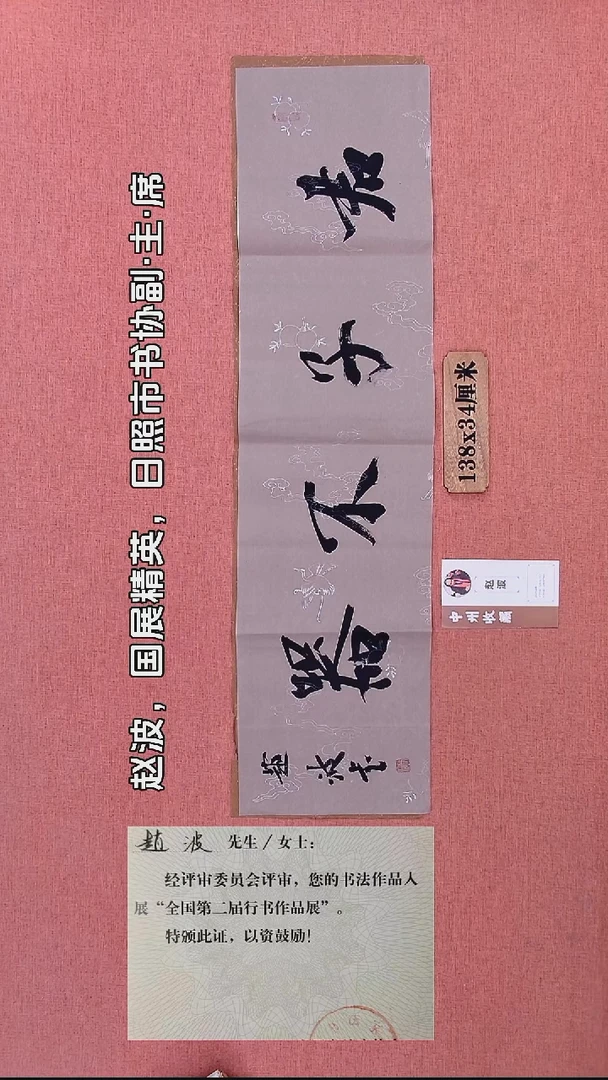 赵波，国展精英，日照市书协副·主·席
君子不器
趙波书
138x34厘米
赵波
中州收藏
趙波 先生/女士：
经评审委员会评审，您的书法作品入
展“全国第二届行书作品展”。
特颁此证，以资鼓励！